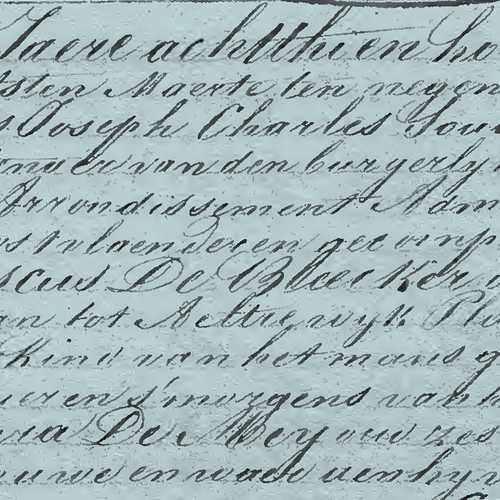 Jaere achtthien ho
sten Maerte ten negen
s Joseph Charles Sou
van den burgerly
Arrondissement Adm
stvlaenderen gecomp
scus De Bleecker
an tot Aeltre wyk Pl
Kind van het man
eren s'morgens van h
ria De Mey oud zes
ouwe en waer aen hy